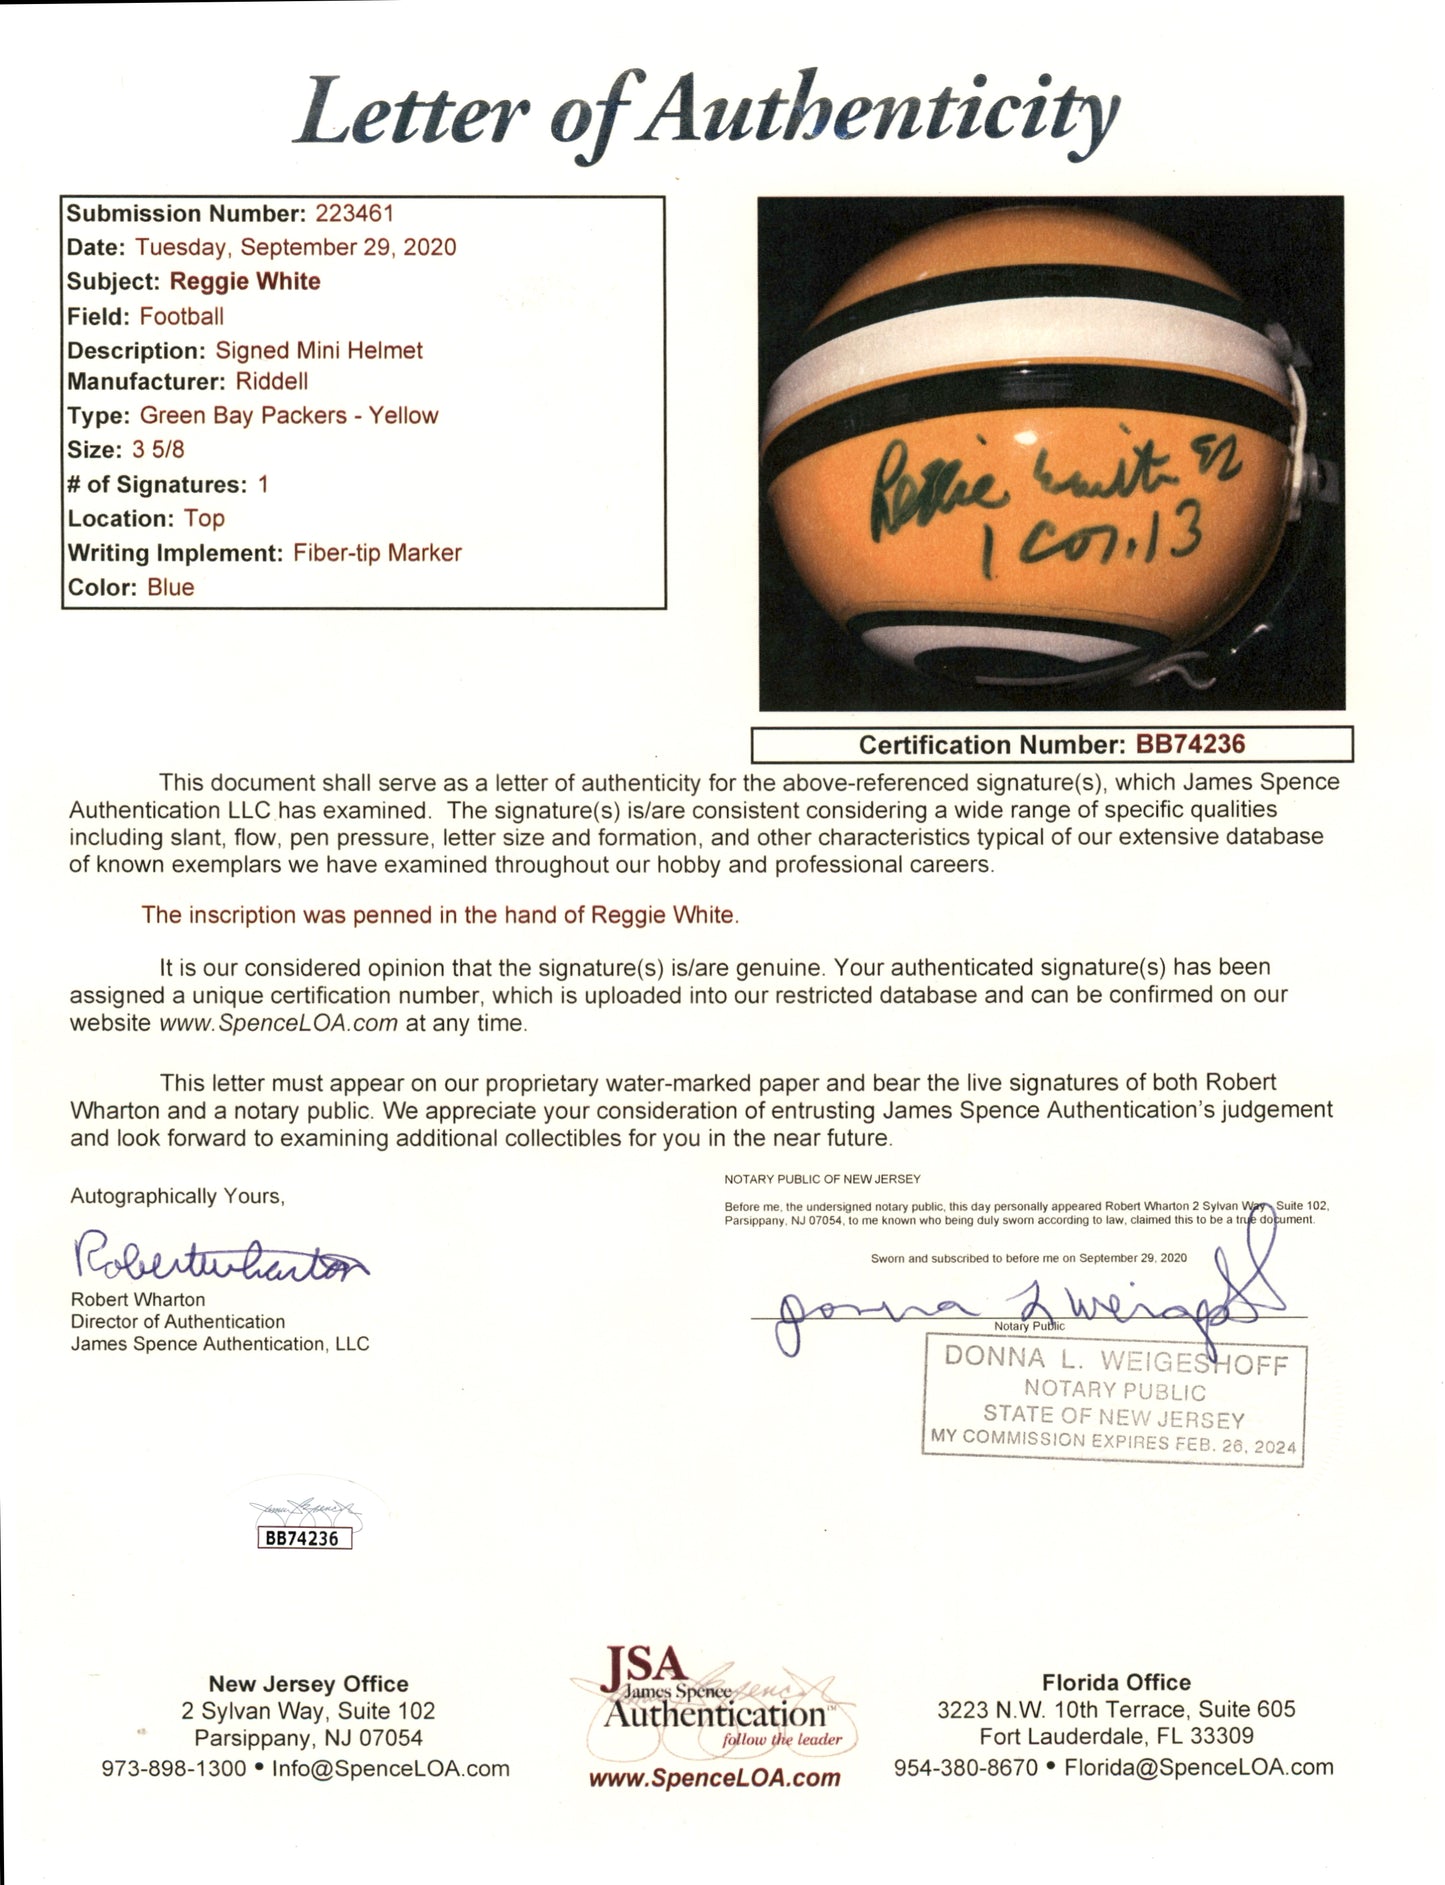 Letter of Authenticity
Submission Number: 223461
Date: Tuesday, September 29, 2020
Subject: Reggie White
Field: Football
Description: Signed Mini Helmet
Manufacturer: Riddell
Type: Green Bay Packers - Yellow
Size: 3 5/8
# of Signatures: 1
Location: Top
Writing Implement: Fiber-tip Marker
Color: Blue
Reggie White 92
1 Cor. 13
Certification Number: BB74236
This document shall serve as a letter of authenticity for the above-referenced signature(s), which James Spence
Authentication LLC has examined. The signature(s) is/are consistent considering a wide range of specific qualities
including slant, flow, pen pressure, letter size and formation, and other characteristics typical of our extensive database
of known exemplars we have examined throughout our hobby and professional careers.
The inscription was penned in the hand of Reggie White.
It is our considered opinion that the signature(s) is/are genuine. Your authenticated signature(s) has been
assigned a unique certification number, which is uploaded into our restricted database and can be confirmed on our
website www.SpenceLOA.com at any time.
This letter must appear on our proprietary water-marked paper and bear the live signatures of both Robert
Wharton and a notary public. We appreciate your consideration of entrusting James Spence Authentication's judgement
and look forward to examining additional collectibles for you in the near future.
Autographically Yours,
Robert Wharton
Robert Wharton
Director of Authentication
James Spence Authentication, LLC
NOTARY PUBLIC OF NEW JERSEY
Before me, the undersigned notary public, this day personally appeared Robert Wharton 2 Sylvan Way, Suite 102,
Parsippany, NJ 07054, to me known who being duly sworn according to law, claimed this to be a true document.
Sworn and subscribed to before me on September 29, 2020
Donna L Weigeshoff
Notary Public
DONNA L. WEIGESHOFF
NOTARY PUBLIC
STATE OF NEW JERSEY
MY COMMISSION EXPIRES FEB. 26, 2024
James Spence
BB74236
New Jersey Office
2 Sylvan Way, Suite 102
Parsippany, NJ 07054
973-898-1300 • Info@SpenceLOA.com
JSA
James Spence
Authentication™
follow the leader
www.SpenceLOA.com
Florida Office
3223 N.W. 10th Terrace, Suite 605
Fort Lauderdale, FL 33309
954-380-8670 • Florida@SpenceLOA.com